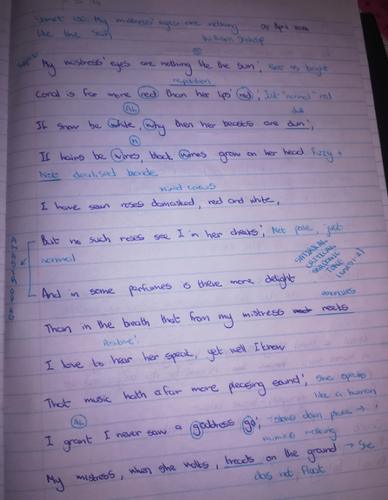 Sonnet 130: My mistress' eyes are nothing
like the sun
April
William
My mistress' eyes are nothing like the sun; Not as bright
repetition
Coral is far more red than her lips' red; Just "normal" red
Ah dull
If snow be white, why then her breasts are dun;
M
If hairs be wires, black wires grow on her head frizzy +
Not idealised blonde
mixed colours
I have seen roses damasked, red and white,
But no such roses see I in her cheeks; Not pale, just
normal
SATIRICAL
CRITICAL
TONE
(LINES 1-)
And in some perfumes is there more delight
Than in the breath that from my mistress reeks
Positive
I love to hear her speak, yet well I know
That music hath a far more pleasing sound; She speaks
like a human
Ah
I grant I never saw a goddess go; slows down pace →
mimics walking
My mistress, when she walks, treads on the ground → She
does not float